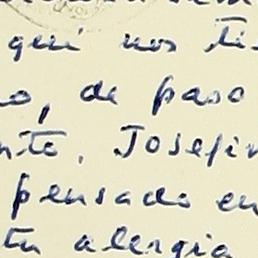 qui nos ti
o, de paso
nte. Josefin
pensado en
tu alergia